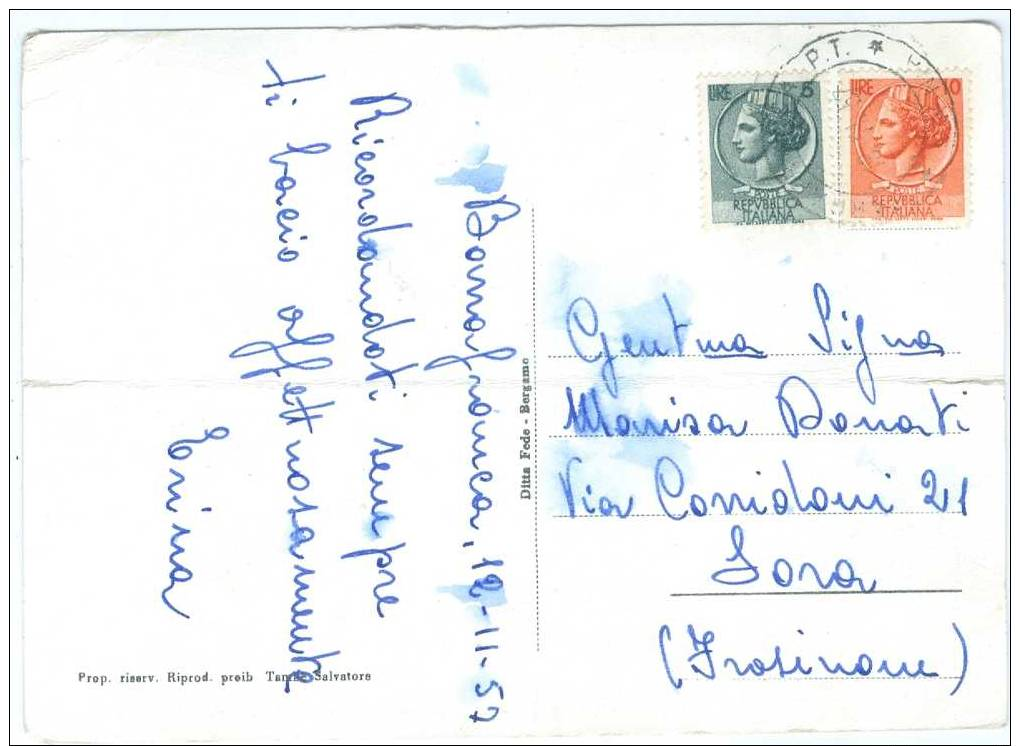 Bonnafranca, 12-11-57
Ricordandoti sempre
ti bacio affettuosamente
Erina
Ditta Fede - Bergamo
Prop. riserv. Riprod. proib Salvatore
P.T. ★
LIRE 5
POSTE
REPVBBLICA
ITALIANA
LIRE 10
POSTE
REPVBBLICA
ITALIANA
Gentma Signa
Marisa Donati
Via Corridoni 21
Sora
(Frosinone)